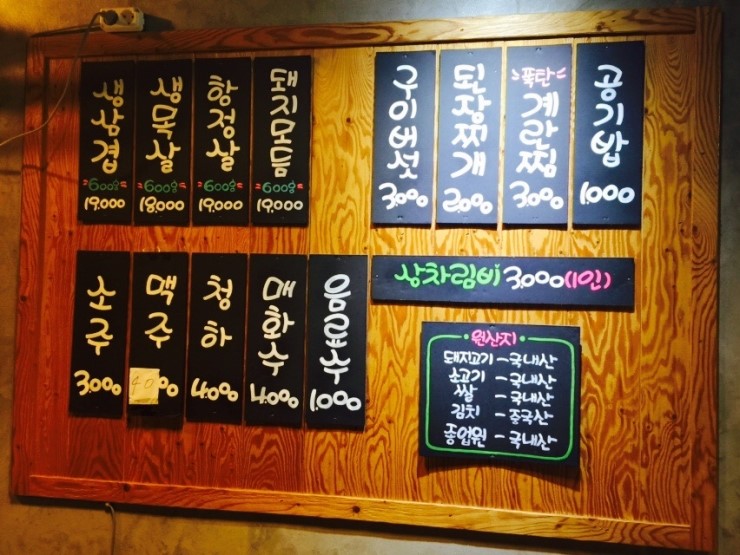 생삼겹
=600g=
19.000
생목살
=600g=
18.000
항정살
=600g=
19.000
돼지모듬
=600g=
19.000
구이버섯
3.000
된장찌개
2.000
폭탄
계란찜
3.000
공기밥
1.000
소주
3.000
맥주
4000
청하
4.000
매화수
4.000
음료수
1.000
상차림비 3.000(1인)
원산지
돼지고기 - 국내산
소고기 - 국내산
쌀 - 국내산
김치 - 중국산
종업원 - 국내산